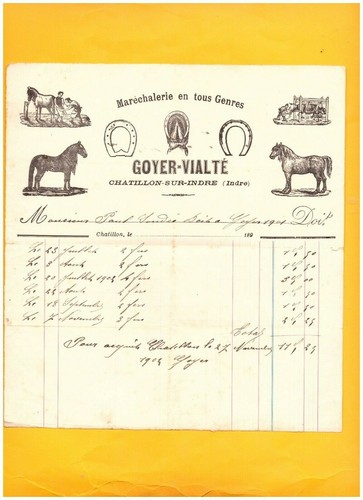 Maréchalerie en tous Genres
GOYER-VIALTÉ
CHATILLON-SUR-INDRE (Indre)
Monsieur Paul Doit
Chatillon, le 190
Le 23 Juillet 2 fers 1f 50
Le 3 Août 2 fers 1f 50
Le 20 Juillet 4 fers 3f 00
Le 22 Août 2 fers 1f 50
Le 18 Septembre 2 fers 1f 50
Le 7 Novembre 3 fers 2f 25
Total 11f 25
Pour acquit Chatillon le 27 Novembre
Goyer